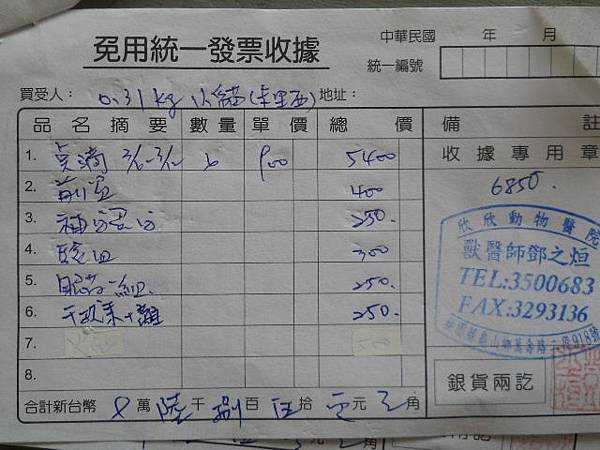 免用統一發票收據
中華民國 年 月
統一編號
買受人: 0.31kg 小貓(卡里西) 地址:
品名摘要 數量 單價 總價 備註
收據專用章
1. 點滴 3/6-3/12 6 900 5400
2. 400
3. 250.
4. 驗血 300
5. 眼藥一組. 250.
6. 250.
7.
8.
6850.
欣欣動物醫院
獸醫師鄧之烜
TEL:3500683
FAX:3293136
桃園縣龜山鄉萬壽路二段918號
合計新台幣 萬陸千捌百伍拾零元 角
銀貨兩訖